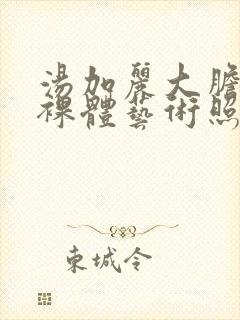 湯加麗大膽
裸體藝術照
東城令